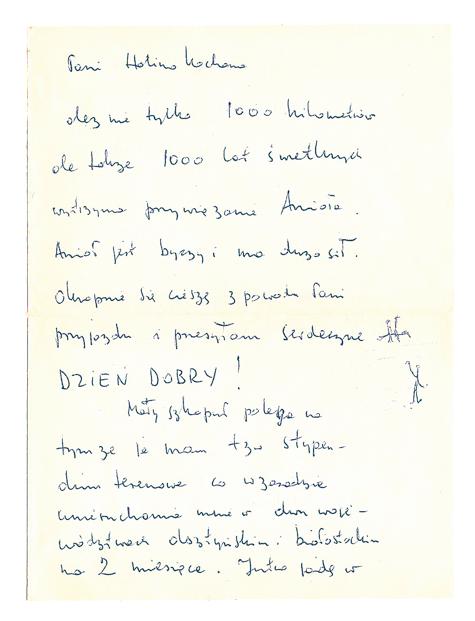 Pani Halino Kochana
ależ nie tylko 1000 kilometrów
ale także 1000 lat świetlnych
wytrzyma przywiązanie Anioła.
Anioł jest byczy i ma dużo sił.
Okropnie się cieszę z powodu Pani
przyjazdu i przesyłam serdeczne
DZIEŃ DOBRY!
Mały szkopuł polega na
tym że ja mam tzw stypen-
dium terenowe co w zasadzie
unieruchamia mnie w dwu woje-
wództwach olsztyńskim i białostockim
na 2 miesiące. Jutro jadę w